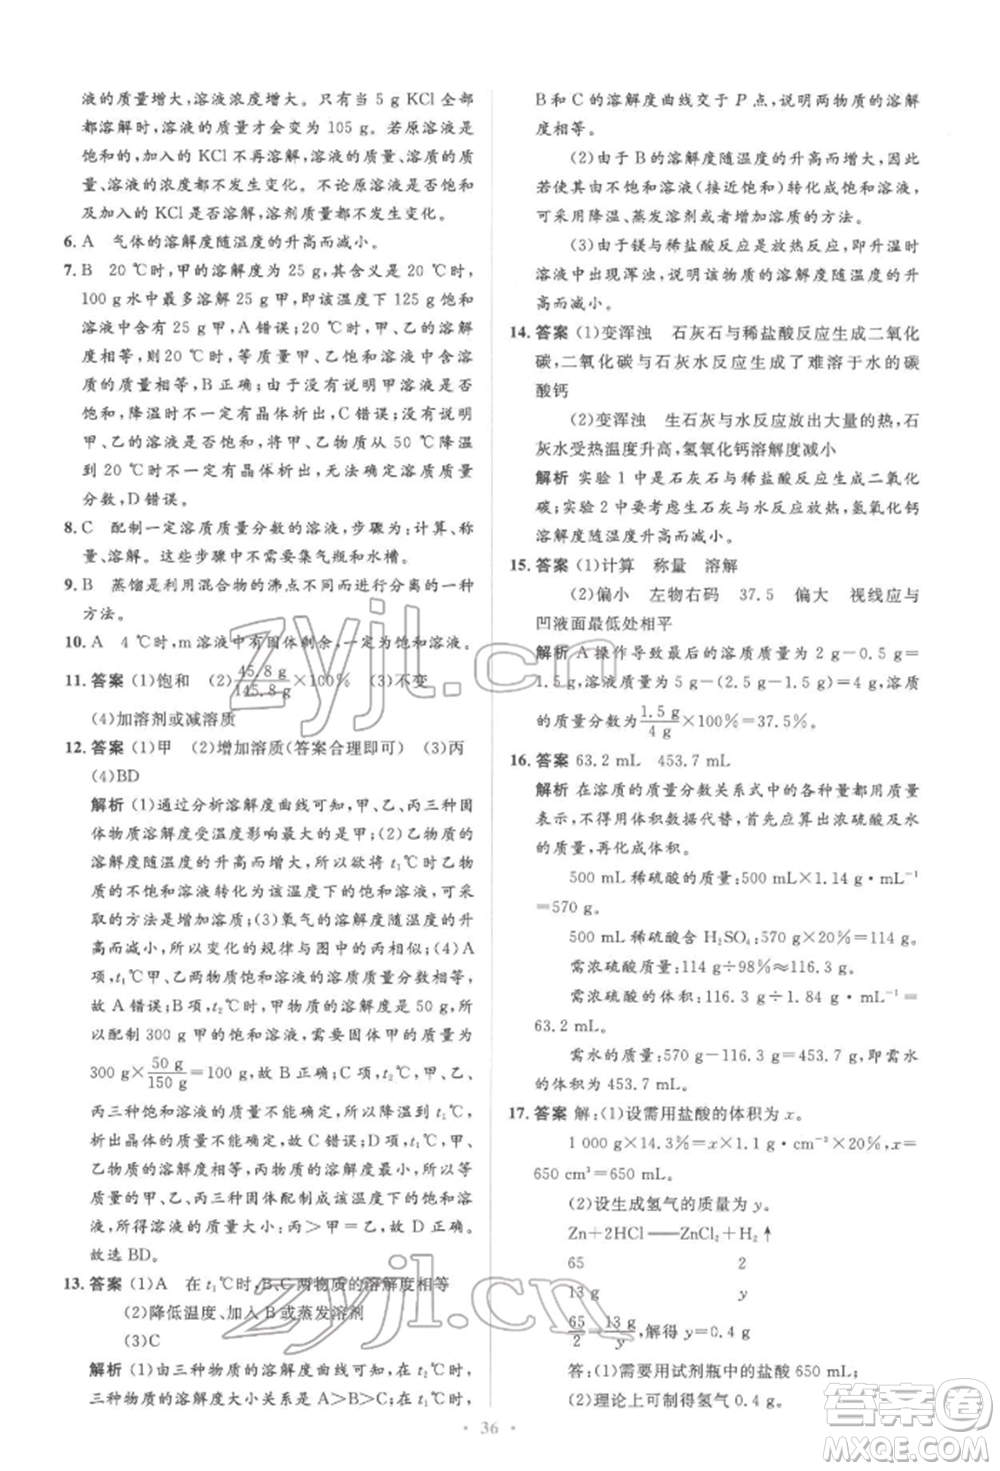 液的质量增大,溶液浓度增大。只有当 5 g KCl 全部
都溶解时,溶液的质量才会变为 105 g。若原溶液是
饱和的,加入的 KCl 不再溶解,溶液的质量、溶质的质
量、溶液的浓度都不发生变化。不论原溶液是否饱和
及加入的 KCl 是否溶解,溶剂质量都不发生变化。
6. A 气体的溶解度随温度的升高而减小。
7. B 20 ℃时,甲的溶解度为 25 g,其含义是 20 ℃时,
100 g 水中最多溶解 25 g 甲,该温度下 125 g 饱和溶
液中含有 25 g 甲,A 错误;20 ℃时,甲、乙的溶解度相
等,都是 25 g,125 g 甲、乙的饱和溶液中含溶质的质
量相等,B 正确;由于没有说明甲溶液是否饱和,降温
时不一定有晶体析出,C 错误;没有说明
甲、乙的溶液是否饱和,甲、乙物质从 50 ℃降温
到 20 ℃时不一定有晶体析出,无法确定溶质质量
分数,D 错误。
8. C 配制一定溶质质量分数的溶液,步骤为:计算、称
量、溶解。这些步骤中不需要集气瓶和水槽。
9. B 蒸馏是利用混合物的沸点不同而进行分离的一种
方法。
10. A 4 ℃时,m 溶液中有固体剩余,一定为饱和溶液。
11. 答案 (1)饱和 (2)45.8 g/145.8 g×100% (3)不变
(4)加溶剂或减溶质
12. 答案 (1)甲 (2)增加溶质(答案合理即可) (3)丙
(4)BD
解析 (1)通过分析溶解度曲线可知,甲、乙、丙三种固
体物质溶解度受温度影响最大的是甲;(2)乙物质的
溶解度随温度的升高而增大,所以欲将 t₁℃时乙物质
的不饱和溶液转化为该温度下的饱和溶液,可采
取的方法是增加溶质;(3)氧气的溶解度随温度的升
高而减小,所以变化的规律与图中的丙相似;(4)A
项,t₁℃甲、乙两物质饱和溶液的质量分数相等,
故 A 错误;B 项,t₂℃时,甲物质的溶解度是 50 g,所
以配制 300 g 甲的饱和溶液,需要固体甲的质量为
300 g×50 g/150 g=100 g,故 B 正确;C 项,t₂℃时,甲、乙、
丙三种饱和溶液的质量不能确定,所以降温至 t₁℃,
析出晶体的质量不能确定,故 C 错误;D 项,t₁℃时,
甲、乙物质的溶解度相等,丙物质的溶解度最大,等质
量的甲、乙、丙三种固体配制成该温度下的饱和溶液,
所得溶液的质量大小:丙>甲=乙,故 D 正确。
故选 BD。
13. 答案 (1)A 在 t₁℃时,B、C 两物质的溶解度相等
(2)降低温度、加入 B 或蒸发溶剂
(3)C
解析 (1)由三种物质的溶解度曲线可知,在 t₂℃时,
三种物质的溶解度大小关系是 A>B>C;在 t₁℃时,
B 和 C 的溶解度曲线交于 P 点,说明两物质的溶解
度相等。
(2)由于 B 的溶解度随温度的升高而增大,因此
若使其由不饱和溶液(接近饱和)转化成饱和溶液,
可采用降温、蒸发溶剂或增加溶质的方法。
(3)由于镁与稀盐酸反应是放热反应,即升温时
溶液中出现浑浊,说明该物质的溶解度随温度的升
高而减小。
14. 答案 (1)变浑浊 石灰石与稀盐酸反应生成二氧化
碳,二氧化碳与石灰水反应生成了难溶于水的碳
酸钙
(2)变浑浊 生石灰与水反应放出大量的热,石
灰水受热温度升高,氢氧化钙溶解度减小
解析 实验 1 中是石灰石与稀盐酸反应生成二氧化
碳。实验 2 中是生石灰与水反应放热,氢氧化钙
溶解度随温度升高而减小。
15. 答案 (1)计算 称量 溶解
(2)偏小 左物右码 37.5 偏大 视线应与
凹液面最低处相平
解析 A 操作导致最后的溶质质量为 2 g-0.5 g=
1.5 g,溶液的质量为 5 g-(2.5 g-1.5 g)=4 g,溶质
的质量分数为 1.5 g/4 g×100%=37.5%。
16. 答案 63.2 mL 453.7 mL
解析 在溶质的质量分数关系式中的各种量都用质量
表示,不得用体积数据代替,首先应算出浓硫酸及水的
质量,再化成体积。
500 mL 稀硫酸的质量:500 mL×1.14 g·mL⁻¹
=570 g。
500 mL 稀硫酸含 H₂SO₄:570 g×20%=114 g。
需浓硫酸质量:114 g÷98%≈116.3 g。
需浓硫酸的体积:116.3 g÷1.84 g·mL⁻¹≈
63.2 mL。
需水的质量:570 g-116.3 g=453.7 g,即需水
的体积为 453.7 mL。
17. 答案 解:(1)设需用盐酸的体积为 x。
1 000 g×14.3%=x×1.1 g·cm⁻³×20%,x=
650 cm³=650 mL。
(2)设生成氢气的质量为 y。
Zn+2HCl——ZnCl₂+H₂↑
65 2
13 g y
65/2=13 g/y,解得 y=0.4 g
答:(1)需要用试剂瓶中的盐酸 650 mL;
(2)理论上可制得氢气 0.4 g。
· 36 ·
zyjl.cn
zyjl.cn
答案圈
MXQE.COM